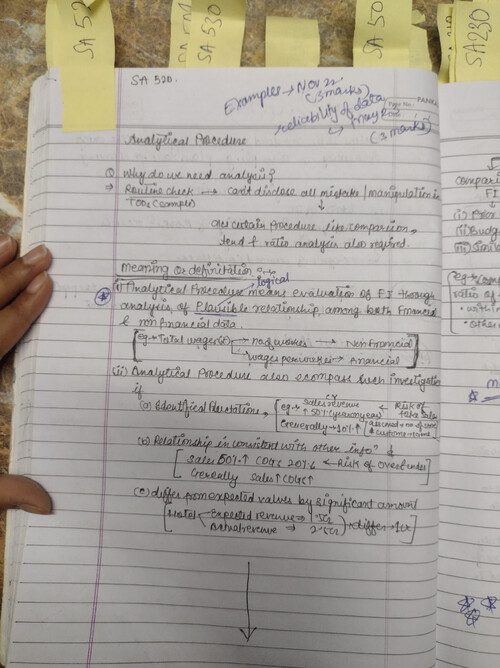 SA 530
SA 50
SA230
SA 520.
Examples → Nov 22
(3 marks)
reliability of data
Page No.
Date
(3 marks)
Analytical Procedure
Q Why do we need analysis?
⇒ Routine check → Can't disclose all mistake / manipulation in
TODs (sample)
↓
certain Procedure like comparison,
trend & ratio analysis also required.
Meaning or definitation :-
logical
(i) Analytical Procedure means evaluation of FI through
analysis of Plausible relationship among both financial
& non financial data.
[eg:- Total wages → no of worker → Non financial
→ wages per worker → financial]
(ii) Analytical Procedure also ecompass such investigation
if
(a) Identified fluctation → [eg:- Sales revenue CY ← Risk of
↑ 50% fake sales
Generally → 10% ↑
(b) Relationship inconsistent with other info
[Sales 50% ↑ COGS 20% ← Risk of
Generally Sales ↑ COGS ↑
(c) differ from expected values by significant amount
[Hotel Expected revenue →
Actual revenue → differ →
↓
Compari
FI
(i) Prior
(ii) Budg
(iii) Simila
ratio of
• within
• other